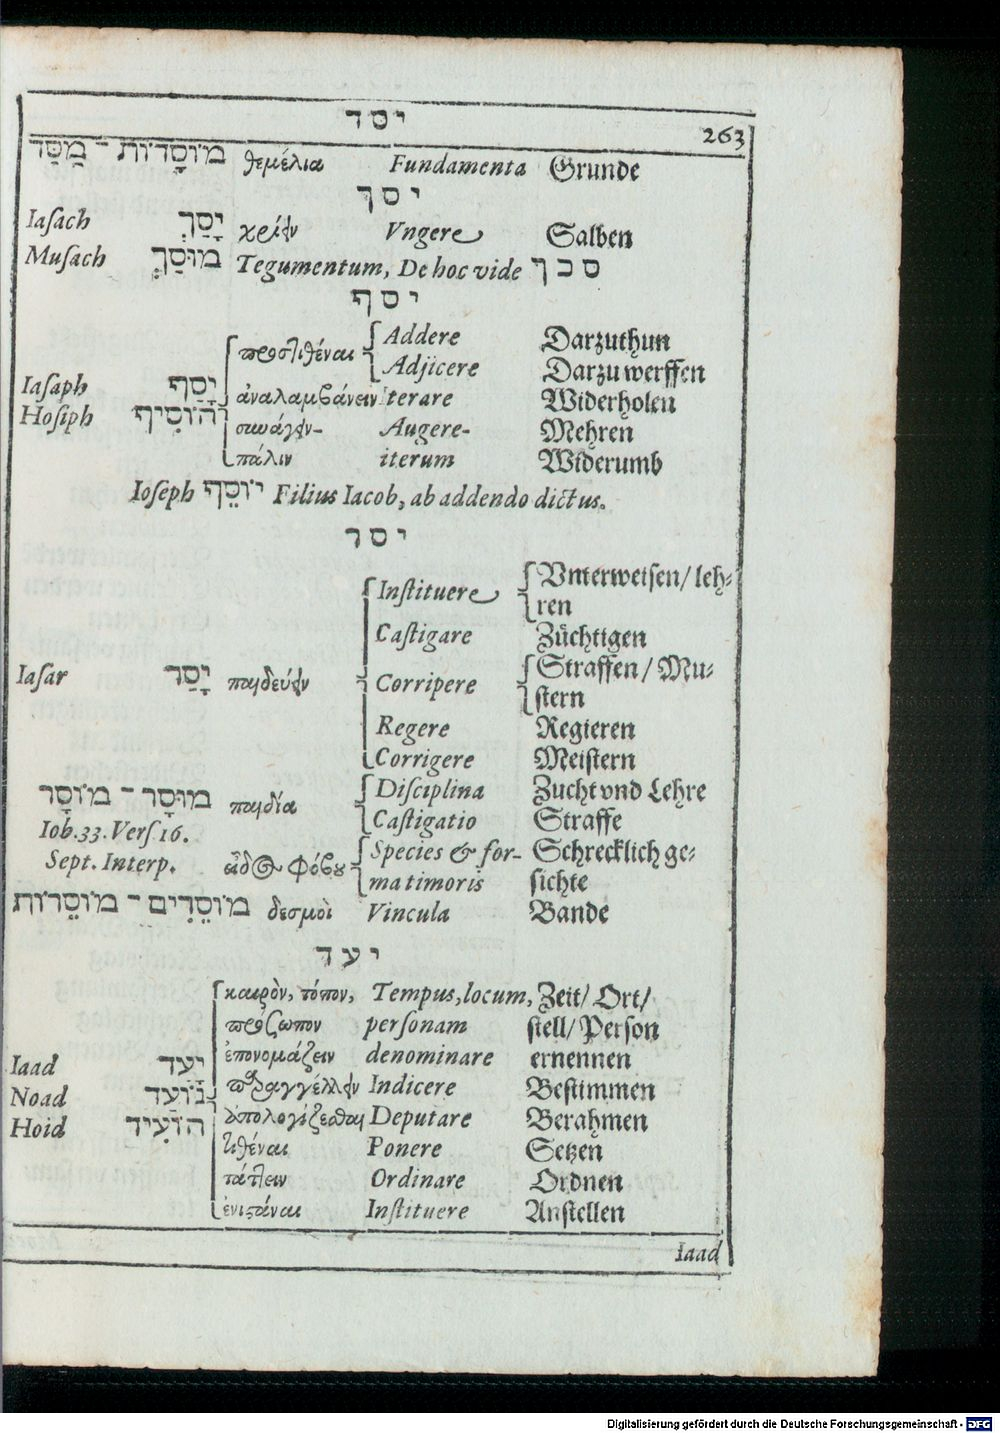 יסד
263
מוֹסָדוֹת - מַסַּד θεμέλια Fundamenta Grunde
יסך
Iaſach יָסַךְ χρίειν Vngere Salben
Muſach מוּסַךְ Tegumentum, De hoc vide סכך
יסף
προστιθέναι Addere Darzuthun
Adjicere Darzu werffen
Iaſaph יָסַף ἀναλαμβάνειν terare Widerholen
Hoſiph הוֹסִיף συνάγειν- Augere- Mehren
πάλιν iterum Widerumb
Ioſeph יוֹסֵף Filius Iacob, ab addendo dictus.
יסר
Inſtituere Vnterweiſen/ leh⸗
ren
Caſtigare Züchtigen
Iaſar יָסַר παιδεύειν Corripere Straffen/ Mu⸗
ſtern
Regere Regieren
Corrigere Meiſtern
מוּסָר - מוֹסָר παιδία Diſciplina Zucht vnd Lehre
Iob. 33. Verſ. 16. Caſtigatio Straffe
Sept. Interp. εἶδος φόβου Species & for- Schrecklich ge⸗
ma timoris ſichte
מוֹסֵרִים - מוֹסֵרוֹת δεσμοὶ Vincula Bande
יעד
καιρὸν, τόπον, Tempus, locum, Zeit/ Ort/
πρόσωπον perſonam ſtell/ Perſon
Iaad יָעַד ἐπονομάζειν denominare ernennen
Noad נוֹעַד παραγγέλλειν Indicere Beſtimmen
Hoid הוֹעִיד ἀπολογίζεσθαι Deputare Berahmen
τιθέναι Ponere Setzen
τάττειν Ordinare Ordnen
ἐνιστάναι Inſtituere Anſtellen
Iaad
Digitalisierung gefördert durch die Deutsche Forschungsgemeinschaft - DFG